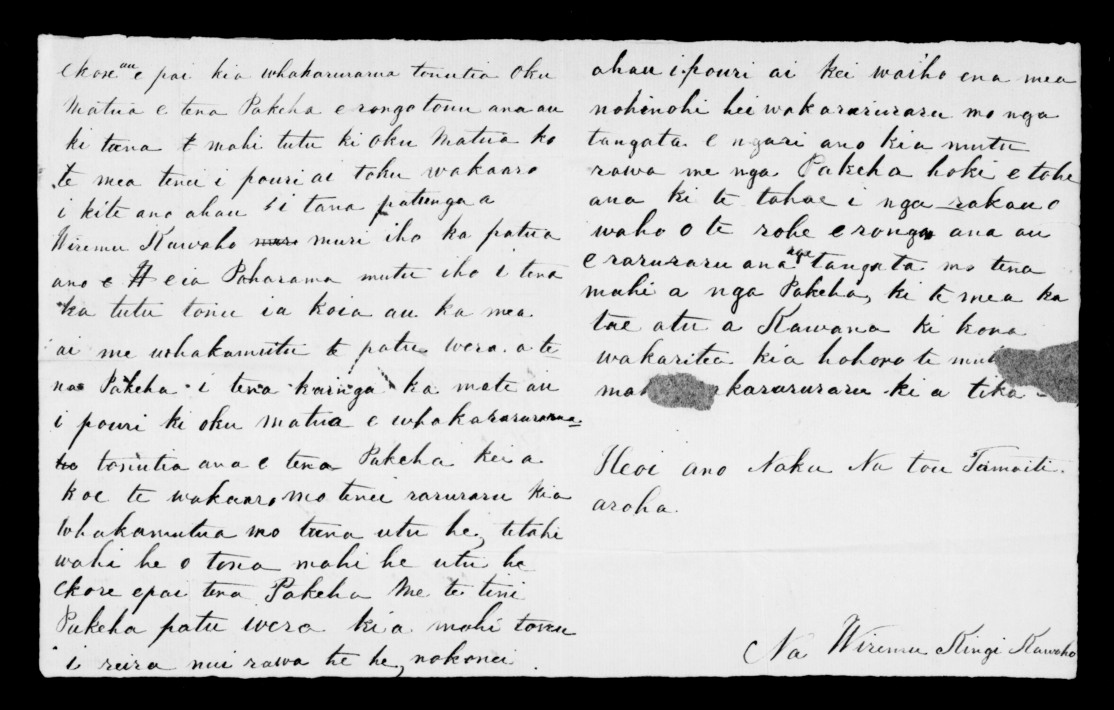 Ekore au e pai kia whakararurarua tonutia Oku
Matua e tena Pakeha e rongo tonu ana au
ki tana mahi tutu ki Oku Matua ko
te mea tenei i pouri ai toku wakaaro
i kite ano ahau i tana patunga a
Wiremu Kawaho muri iho ka patua
ano e ia Poharama mutu iho i tena
ka tutu tonu ia koia au ka mea
ai me whakamutu te patu wera. a te
na Pakeha i tena karinga ka mate au
i pouri ki oku matua e whakararurarua
tonutia ana e tena Pakeha kei a
koe te wakaaro mo tenei raruraru kia
Whakamutua mo tana utu he, titahi
wahi he o tona mahi he utu he
Ekore epai tena Pakeha Me te tini
Pakeha patu wera kia mahi tonu
i reira nui rawa te he, nokonei
ahau i pouri ai kei waiho ena mea
nohinohi hei wakararuraru mo nga
tangata. e ngari ano kia mutu
rawa me nga Pakeha hoki e tohe
ana ki te tahae i nga rakau o
waho o te rohe e rongo ana au
e raruraru ana nga tangata mo tena
mahi a nga Pakeha, ki te mea ka
tae atu a Kawana ki kona
wakaritea kia hohoro te mu
ma kararuraru kia tika -
Heoi ano Naku Na tou Tamaiti
aroha.
Na Wiremu Kingi Kawaho